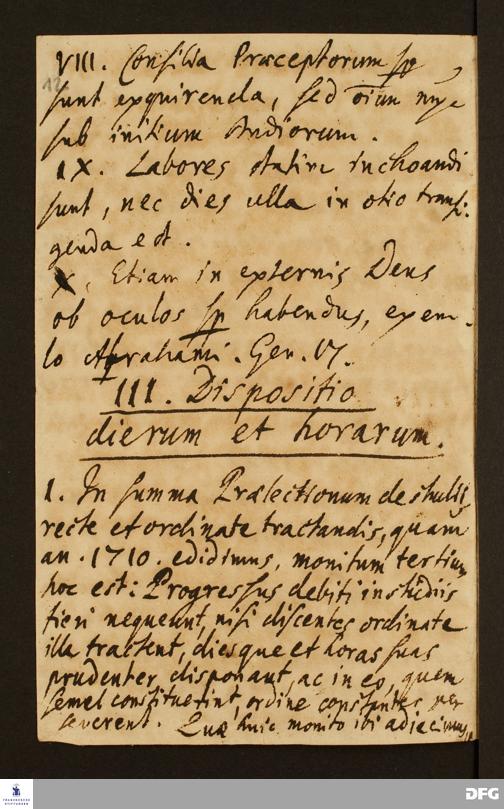 VIII. Consilia Præceptorum sp
12
sunt exquirenda, sed
sub initium studiorum.
IX. Labores statim inchoandi
sunt, nec dies ulla in otio transi-
genda est.
X. Etiam in externis Deus
ob oculos sp habendus, exem-
lo Abrahami. Gen. 17.
III. Dispositio
dierum et horarum.
1. In summa Prælectionum de studiis
recte et ordinate tractandis, quam
an. 1710. edidimus, monitum tertium
hoc est: Progressus debiti in studiis
fieri nequeunt, nisi discentes ordinate
illa tractent, dies que et horas suas
prudenter disponant, ac in eo, quem
semel constituerint, ordine constanter per
severent. Quæ huic monito ibi adiecimus,
FRANCKESCHE STIFTUNGEN
DFG